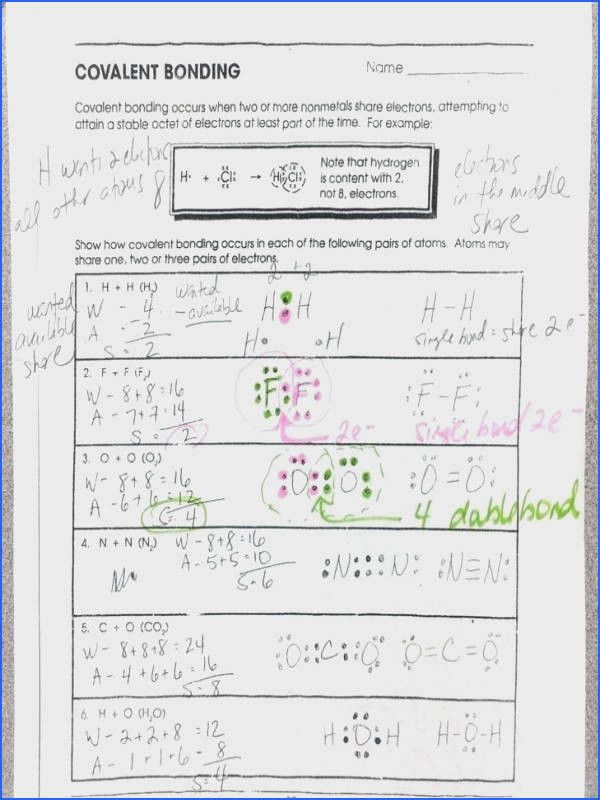 COVALENT BONDING
Name
Covalent bonding occurs when two or more nonmetals share electrons, attempting to
attain a stable octet of electrons at least part of the time. For example:
H wants 2 electrons
all other atoms 8
H· + Cl → H Cl
Note that hydrogen
is content with 2,
not 8, electrons.
electrons
in the middle
share
Show how covalent bonding occurs in each of the following pairs of atoms. Atoms may
share one, two or three pairs of electrons.
2 + 2
wanted
available
share
1. H + H (H₂)
W - 4
A - 2
S = 2
wanted
- available
H : H
H· ·H
H - H
single bond = share 2 e-
2. F + F (F₂)
W - 8+8=16
A - 7+7=14
S = 2
F F
2e-
F - F
single bond 2e-
3. O + O (O₂)
W - 8+8=16
A - 6+6=12
S= 4
O O
O = O
4 double bond
4. N + N (N₂)
W - 8+8=16
A - 5+5=10
S - 6
:N:::N:
:N≡N:
5. C + O (CO₂)
W - 8+8+8=24
A - 4+6+6=16
S - 8
O::C::O
O=C=O
6. H + O (H₂O)
W - 2+2+8=12
A - 1+1+6 - 8
S= 4
H:O:H
H-O-H